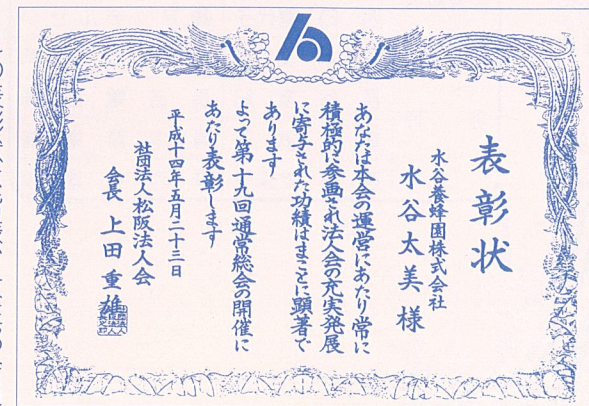 表彰状
水谷養蜂園株式会社
水谷太美様
あなたは本会の運営にあたり常に
積極的に参画され法人会の充実発展
に寄与された功績はまことに顕著で
あります
よって第十九回通常総会の開催に
あたり表彰します
平成十四年五月二十三日
社団法人松阪法人会
会長 上田重雄